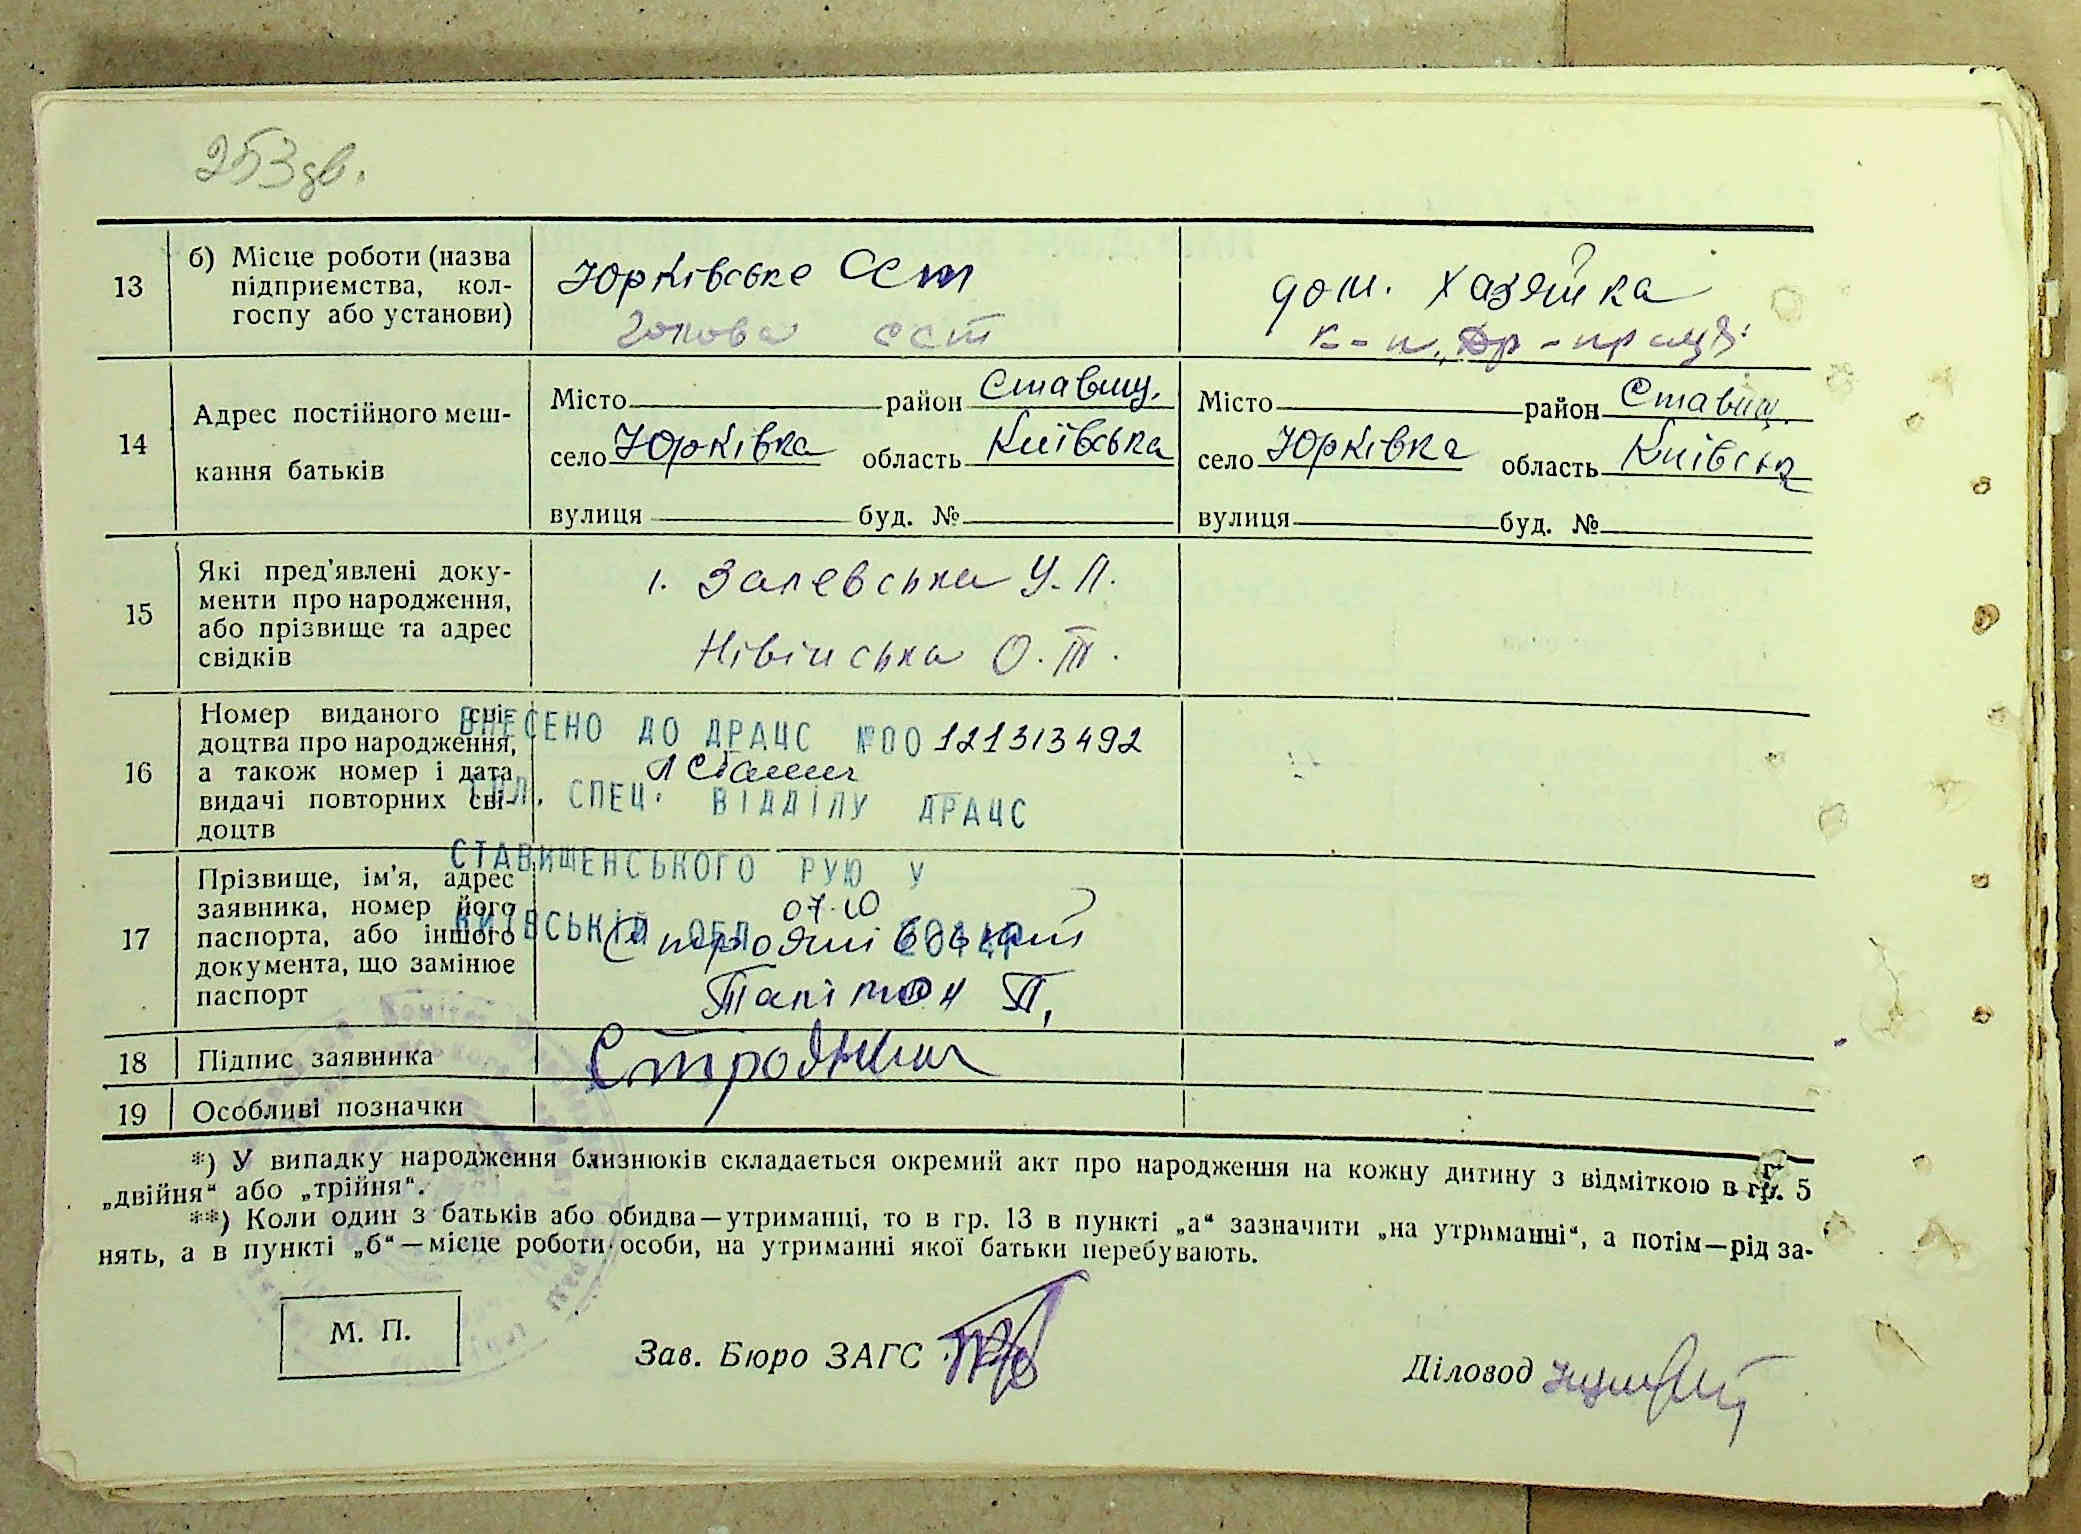 253 зв.
13
б) Місце роботи (назва
підприємства, кол-
госпу або установи)
Юрківське ССТ
голова ССТ
дом. хазяйка
14
Адрес постійного меш-
кання батьків
Місто район Ставищ.
село Юрківка область Київська
вулиця буд. №
Місто район Ставищ.
село Юрківка область Київськ
вулиця буд. №
15
Які пред'явлені доку-
менти про народження,
або прізвище та адрес
свідків
1. Залевська У. П.
Нівінська О. Т.
16
Номер виданого сві-
доцтва про народження,
а також номер і дата
видачі повторних сві-
доцтв
ВНЕСЕНО ДО ДРАЦС №00121313492
СПЕЦ. ВІДДІЛУ ДРАЦС
СТАВИЩЕНСЬКОГО РУЮ У
КИЇВСЬКІЙ ОБЛ
07.10
17
Прізвище, ім'я, адрес
заявника, номер його
паспорта, або іншого
документа, що замінює
паспорт
Тапітон П.
18
Підпис заявника
19
Особливі позначки
*) У випадку народження близнюків складається окремий акт про народження на кожну дитину з відміткою в гр. 5
„двійня“ або „трійня“.
**) Коли один з батьків або обидва—утриманці, то в гр. 13 в пункті „а“ зазначити „на утриманні“, а потім—рід за-
нять, а в пункті „б“—місце роботи особи, на утриманні якої батьки перебувають.
М. П.
Зав. Бюро ЗАГС
Діловод